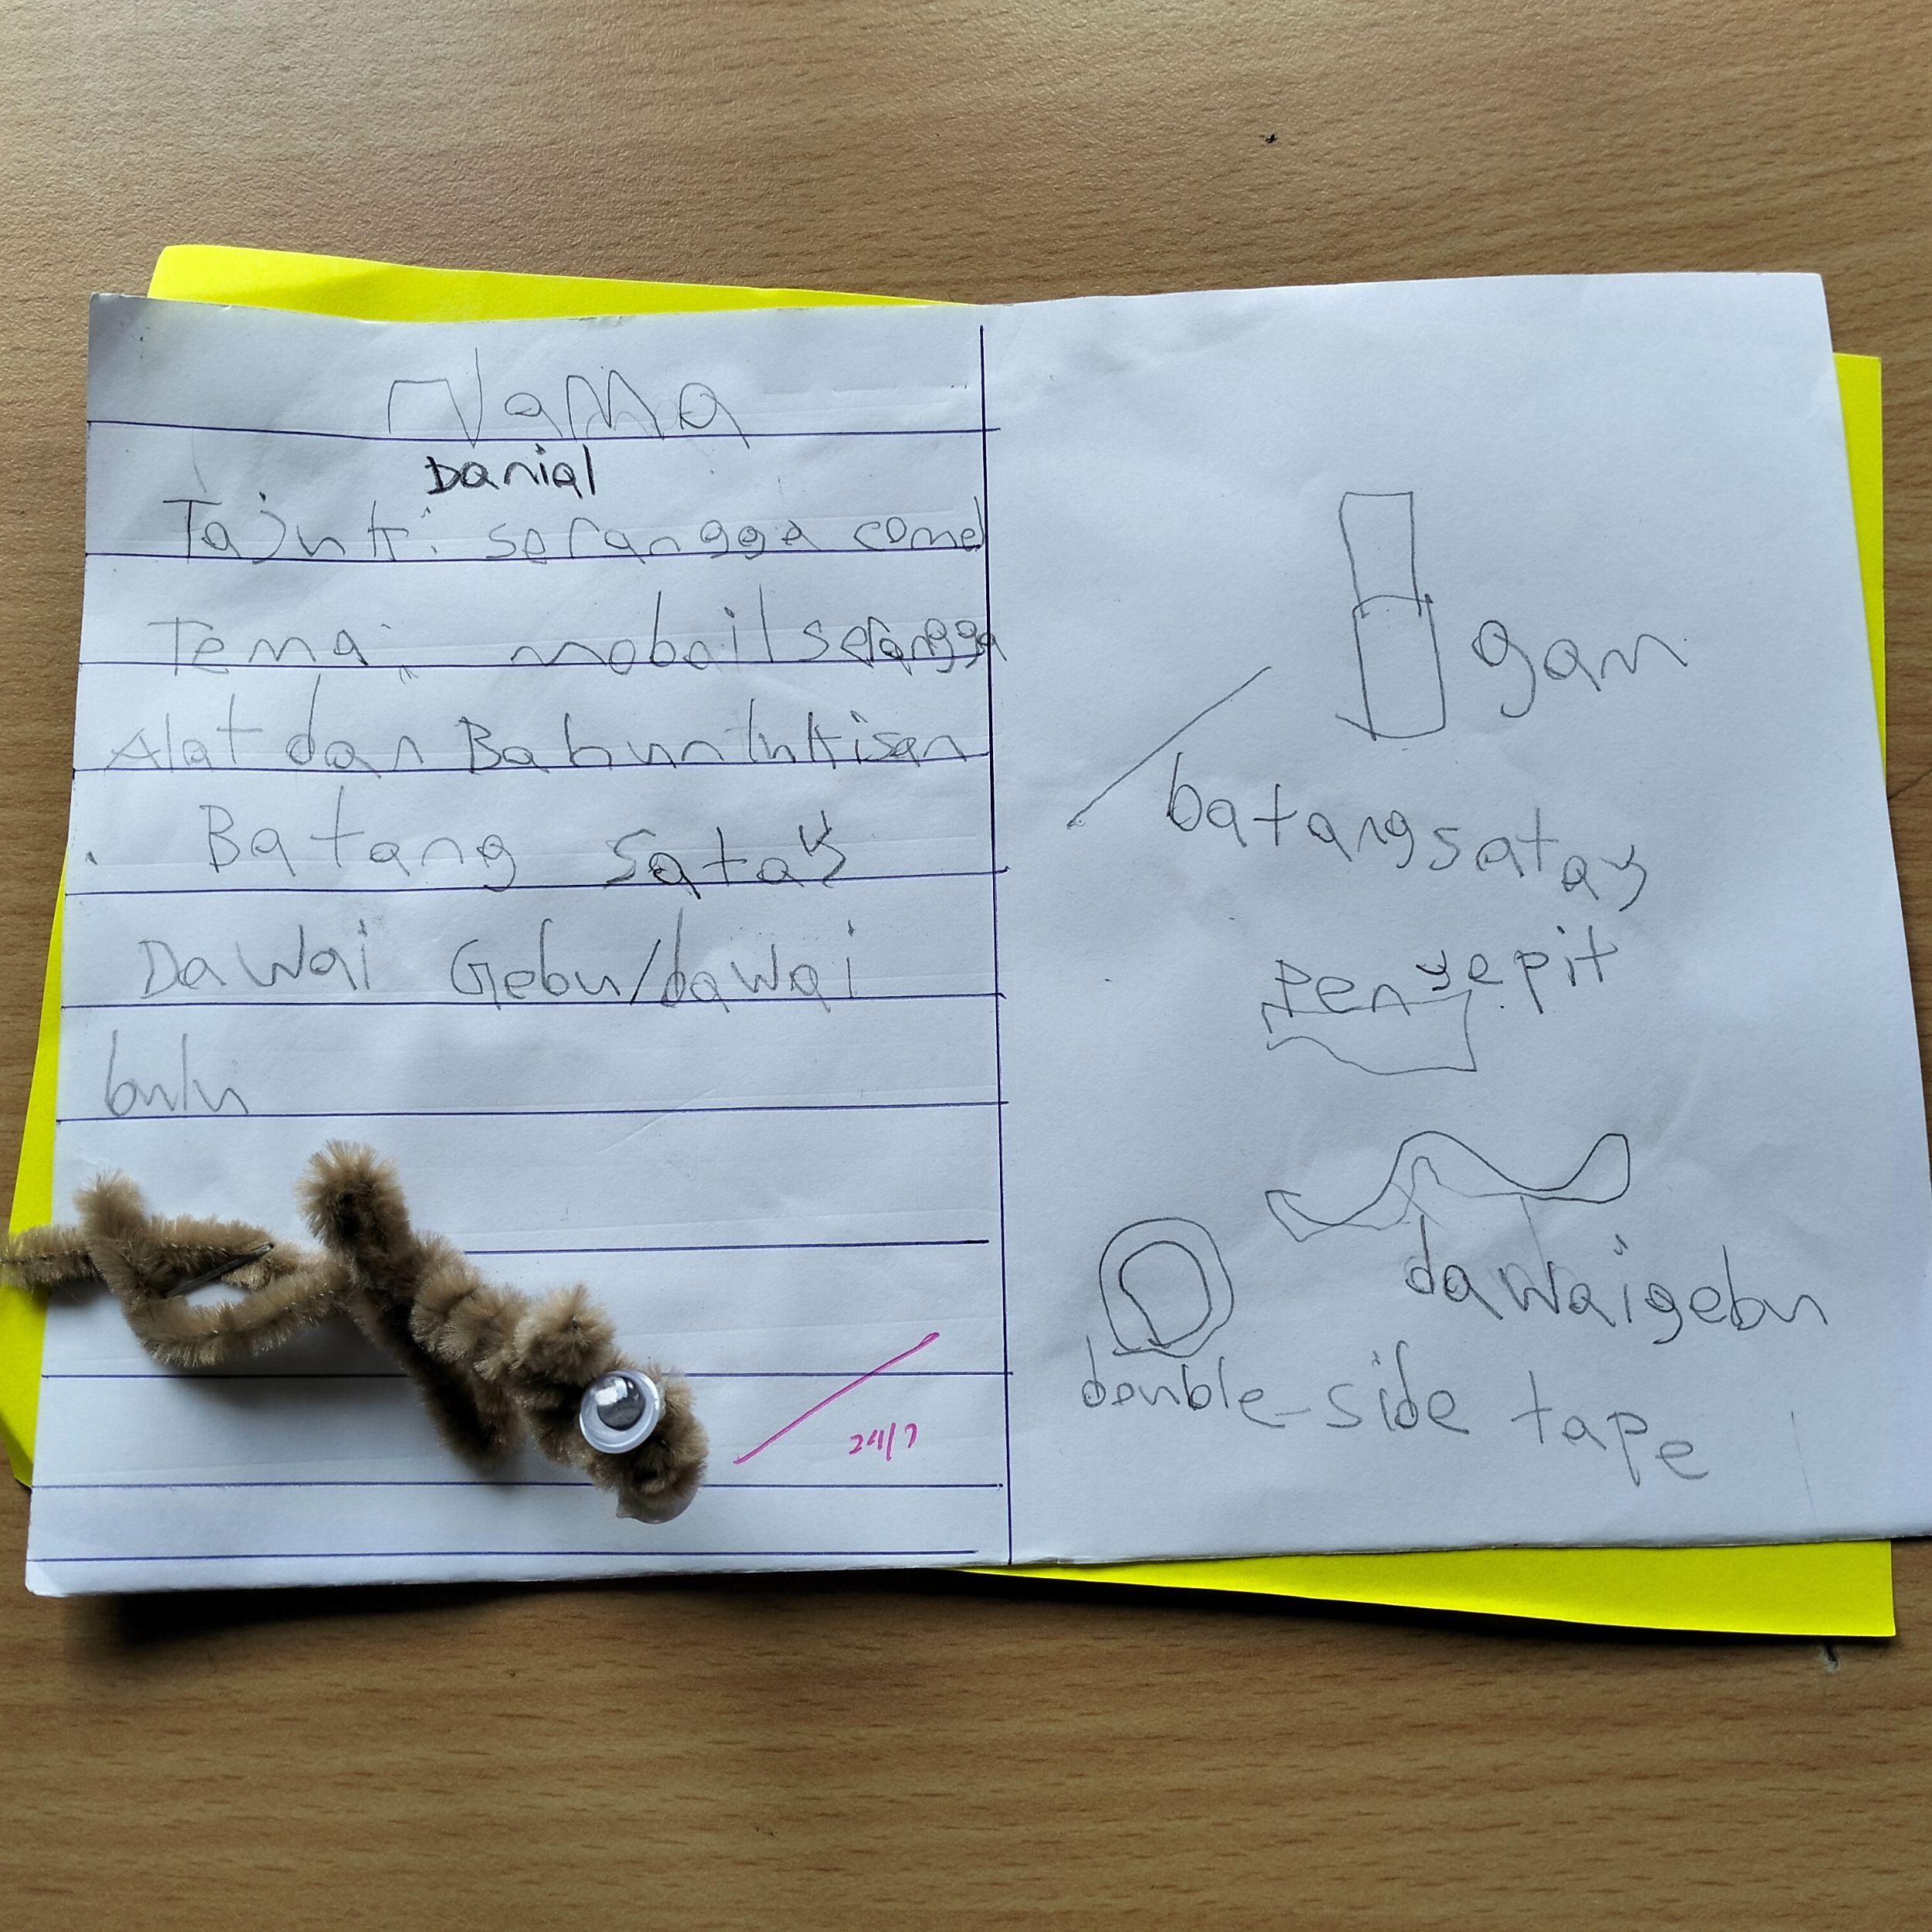 Nama
Danial
Tajuk: serangga comel
Tema: mobail serangga
Alat dan Bahun lukisan
Batang satay
Dawai Gebu/dawai
bulu
24/7
gam
batang satay
Penyepit
dawai gebu
double-side tape